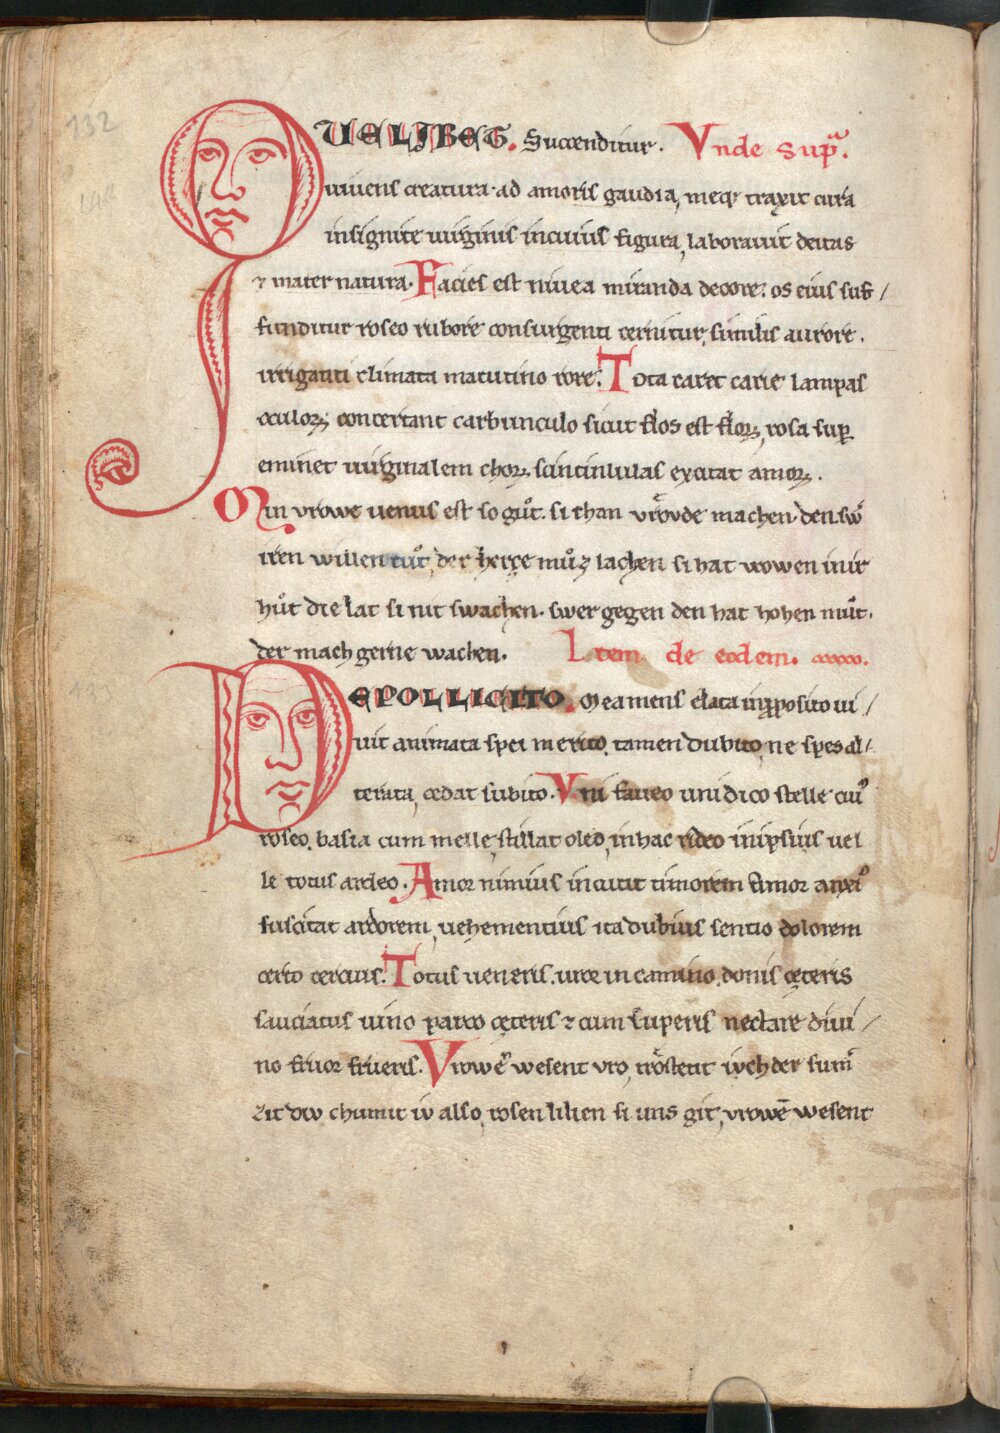 132
QUELIBET. Succenditur. Vnde supᵃ.
uiuens creatura. ad amoris gaudia, meqꝫ traxit cura
insignite uirginis in cuius figura, laborauit deitas
⁊ mater natura. Facies est niuea miranda decore. os eius suf/
funditur roseo rubore consurgenti cernitur, similis aurore.
irriganti climata matutino rore. Tota caret carie lampas
oculoꝝ, concertant carbunculo sicut flos est floꝝ, rosa suꝑ
eminet uirginalem choꝝ, scintinlulas excitat amoꝝ.
Min vrowe uenus est so gůt. si chan vrǒvde machen. den sw̄
iren willen tůt, der herçe můz lachen si hat vrowen in ir
hůt die lat si nit swachen. swer gegen den hat hohen můt.
der mach gerne wachen. Item de eodem.
DE POLLICITO. Mea mens elata in ꝓposito ui/
uit animata spei merito, tamen dubito, ne spes al/
terata, cedat subito. Vni faueo uni dico stelle cuiꝰ
roseo, basia cum melle, stillat oleo, in hac rideo in ipsius uel
le totus ardeo. Amor nimius incutit timorem Amor anxiꝰ
suscitat ardorem, uehementius ita dubius sentio dolorem
certo certius. Totus ueneris. uror in camino. donis cęteris
sauciatus uino parco cęteris ⁊ cum superis nectare diui/
no fruor frueris. Vrowē wesent vro, trǒstent iwch der sum̄
zit div chumit iv also, rosen lilien si uns git, vrowē wesent